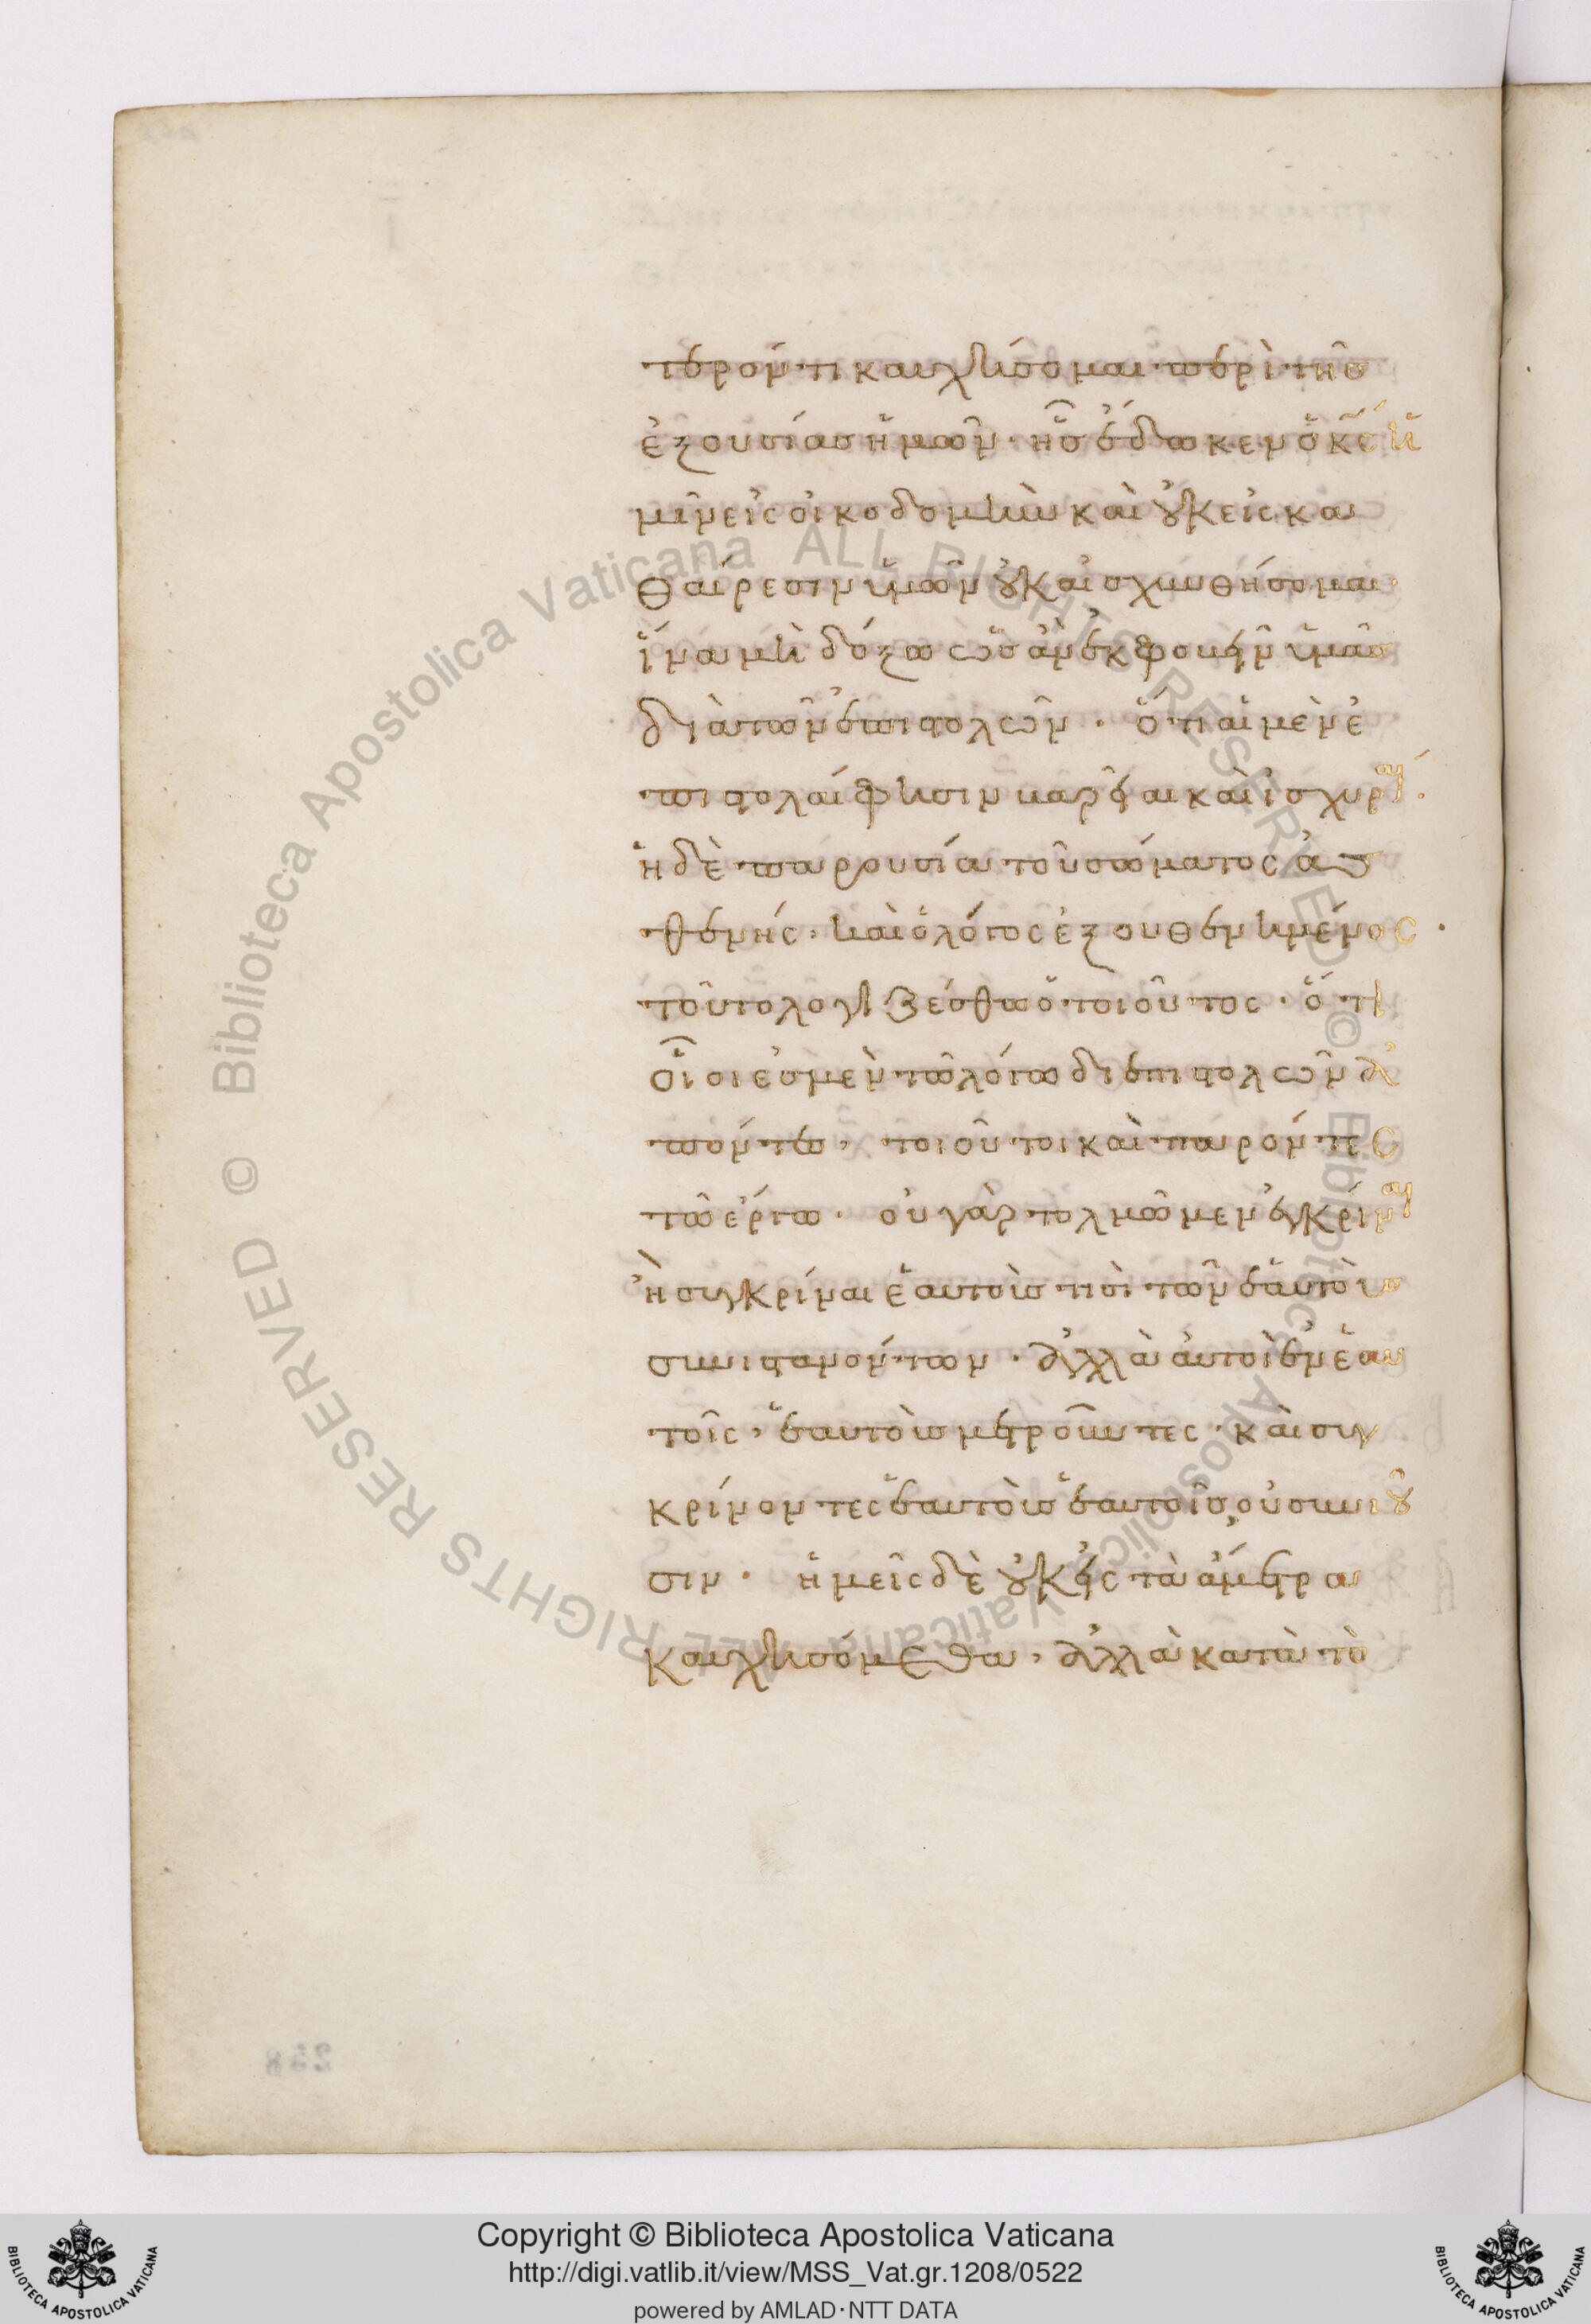 τερόν τι καυχήσομαι περὶ τῆσ
ἐξουσίασ ἡμῶν· ἧσ ἔδωκεν ὁ κ̅ς̅ ἡ
μῖν εἰς οἰκοδομὴν καὶ οὐκ εἰς κα
θαίρεσιν ὑμῶν οὐκ αἰσχυνθήσομαι·
ἵνα μὴ δόξω ὡσ ἂν ἐκφοβεῖν ὑμᾶσ
διὰ τῶν ἐπιστολῶν· ὅτι αἱ μὲν ἐ
πιστολαί φησιν βαρεῖαι καὶ ἰσχυραί·
ἡ δὲ παρουσία τοῦ σώματος ἀσ
θενής· καὶ ὁ λόγος ἐξουθενημένος·
τοῦτο λογιζέσθω ὁ τοιοῦτος· ὅτι
οἷοί ἐσμεν τῶ λόγω δι ἐπιστολῶν ἀ
πόντες, τοιοῦτοι καὶ παρόντες
τῶ ἔργω· οὐ γὰρ τολμῶμεν ἐγκρῖναι
ἢ συγκρίναι ἑαυτούσ τισὶ τῶν ἑαυτοὺσ
συνιστανόντων· ἀλλὰ αὐτοὶ ἐν ἑαυ
τοῖς, ἑαυτοὺσ μετροῦντες· καὶ συγ
κρίνοντες ἑαυτοὺσ ἑαυτοῖσ, οὐ συνιοῦ
σιν· ἡμεῖς δὲ οὐκ εἰς τὰ ἄμετρα
καυχησόμεθα, ἀλλὰ κατὰ τὸ
258
© Biblioteca Apostolica Vaticana ALL RIGHTS RESERVED © Biblioteca Apostolica Vaticana ALL RIGHTS RESERVED
Copyright © Biblioteca Apostolica Vaticana
http://digi.vatlib.it/view/MSS_Vat.gr.1208/0522
powered by AMLAD·NTT DATA
BIBLIOTECA APOSTOLICA VATICANA
BIBLIOTECA APOSTOLICA VATICANA